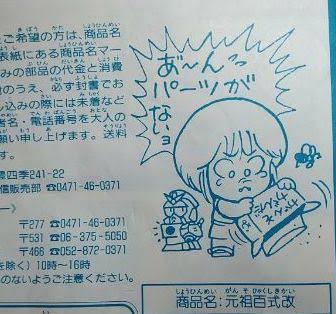 ご希望の方は、商品名
表紙にある商品名マー
みの部品の代金と消費
のうえ、必ず封書でお
し込みの際には未着など
者名・電話番号を大人の
願い申し上げます。送料
四季241-22
信販売部 ☎0471-46-0371
〒277 ☎0471-46-0371
〒531 ☎06-375-5050
〒466 ☎052-872-0371
を除く) 10時〜16時
のないようご注意ください。
あ〜ん
パーツが
ないョ
しょうひんめい がんそひゃくしきかい
商品名:元祖百式改